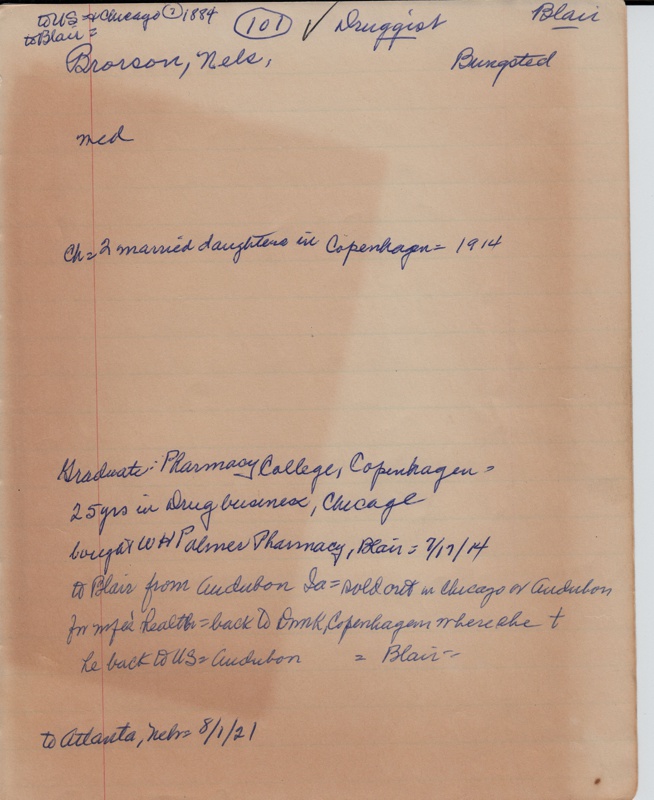 to US = Chicago (?) 1884 (101) ✓ Druggist Blair
to Blair =
Brorson, Nels, Bungsted
md
Ch = 2 married daughters in Copenhagen = 1914
Graduate: Pharmacy College, Copenhagen =
25 yrs in Drug business, Chicago
bought W H Palmer Pharmacy, Blair = 7/17/14
to Blair from Audubon Ia = sold out in Chicago or Audubon
for wife's health = back to Dmk, Copenhagen where she †
he back to US = Audubon = Blair =
to Atlanta, Nebr = 8/1/21